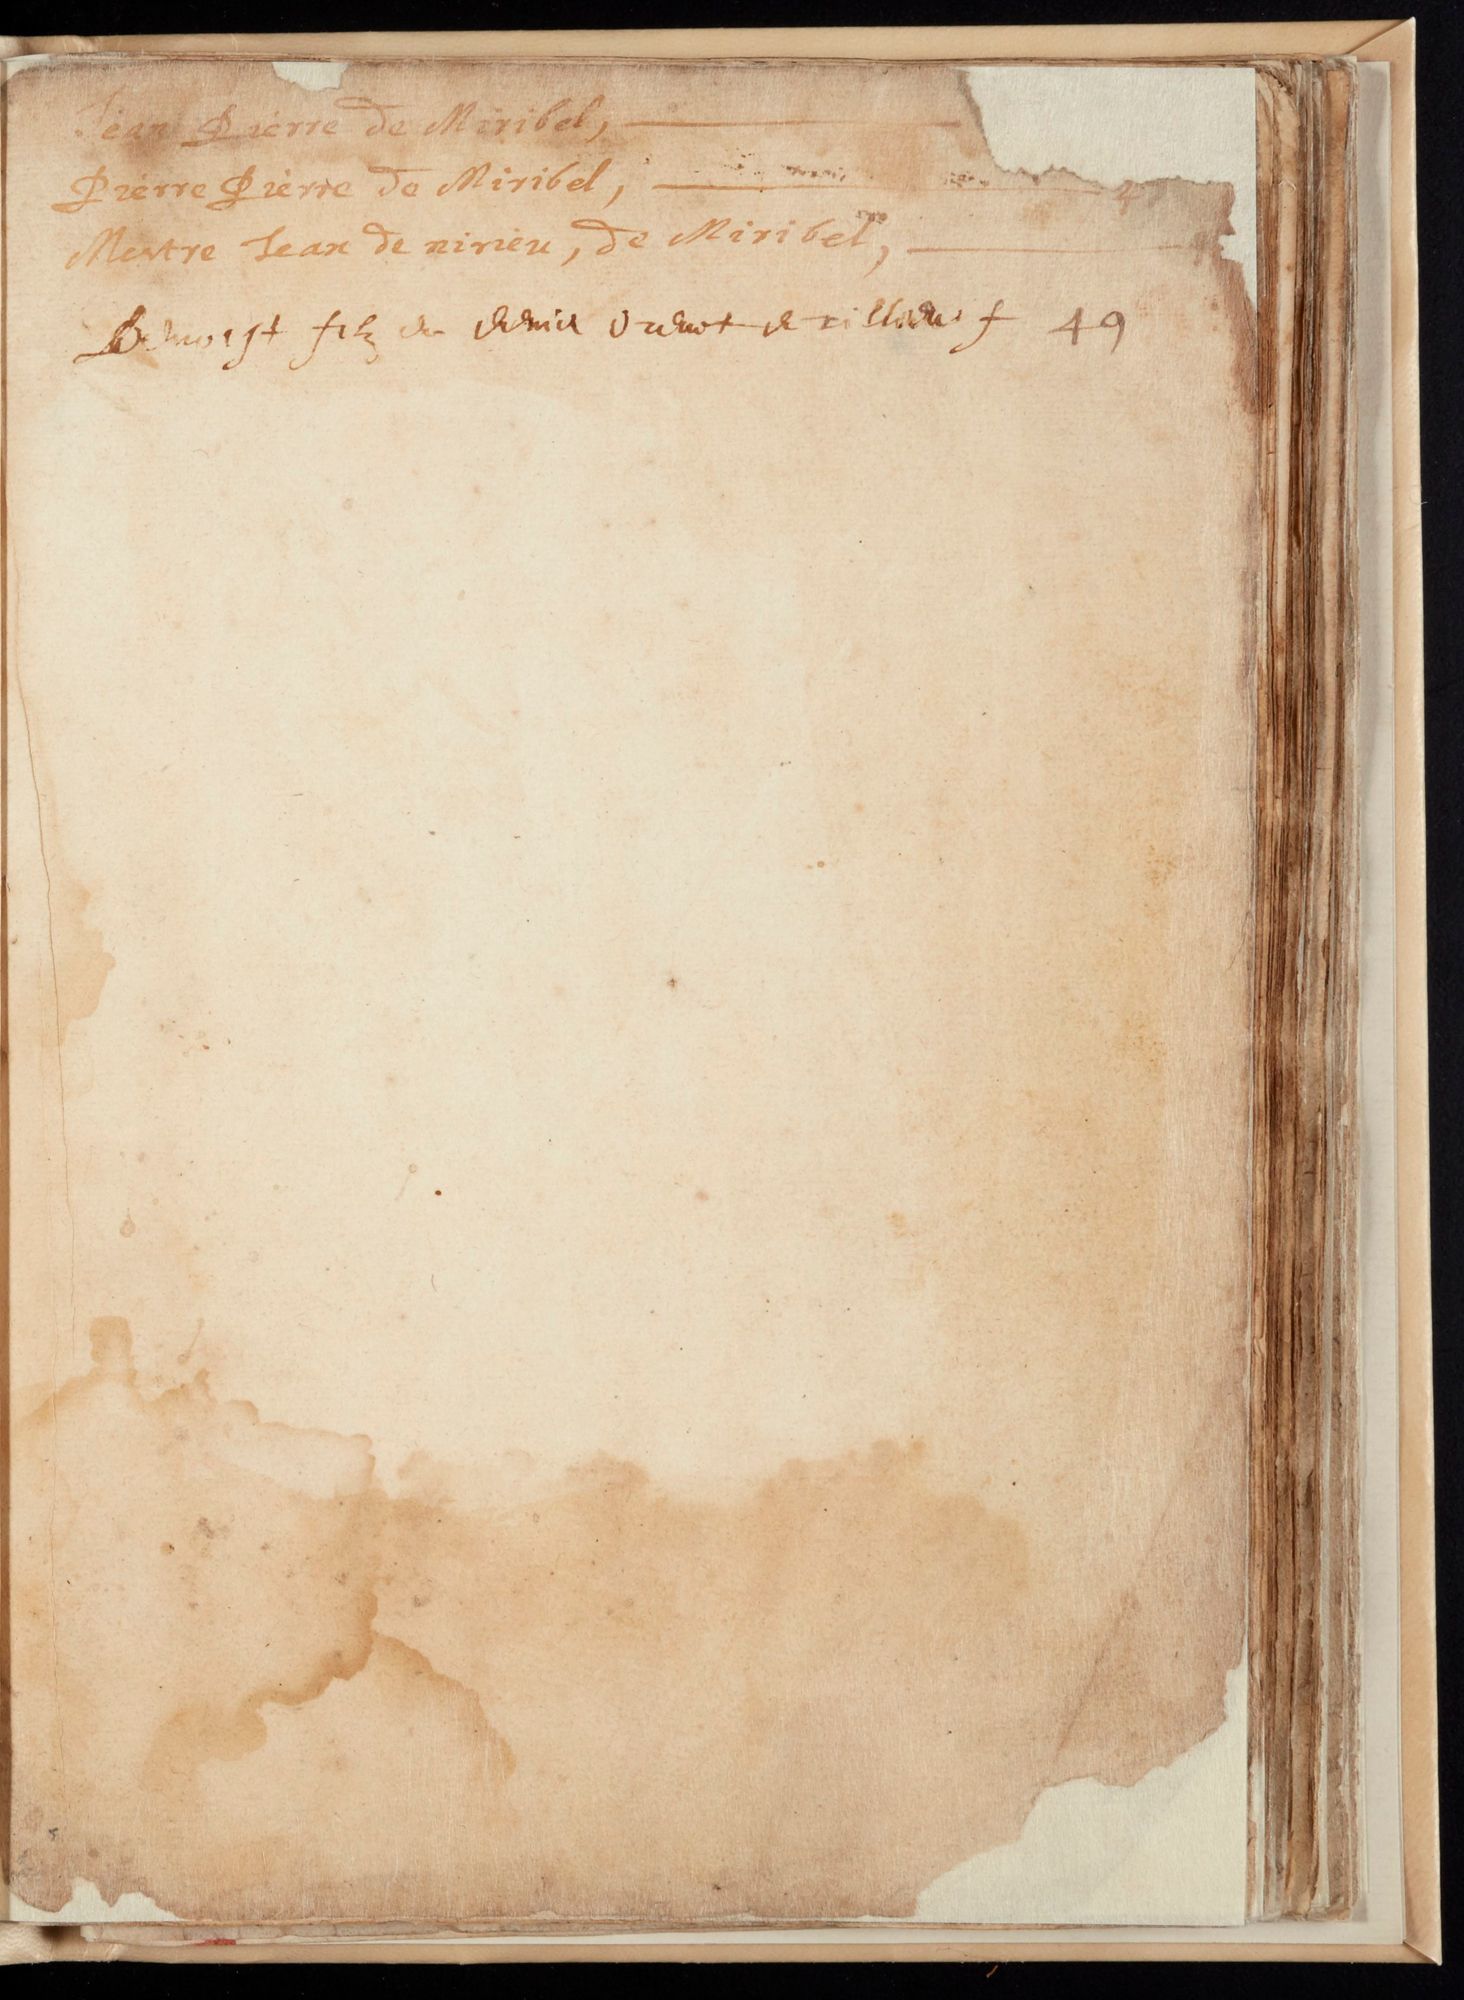 Jean Pierre de Miribel,
Pierre Pierre de Miribel, 4
Mestre Jean de nirieu, de Miribel,
Benoist filz de f 49